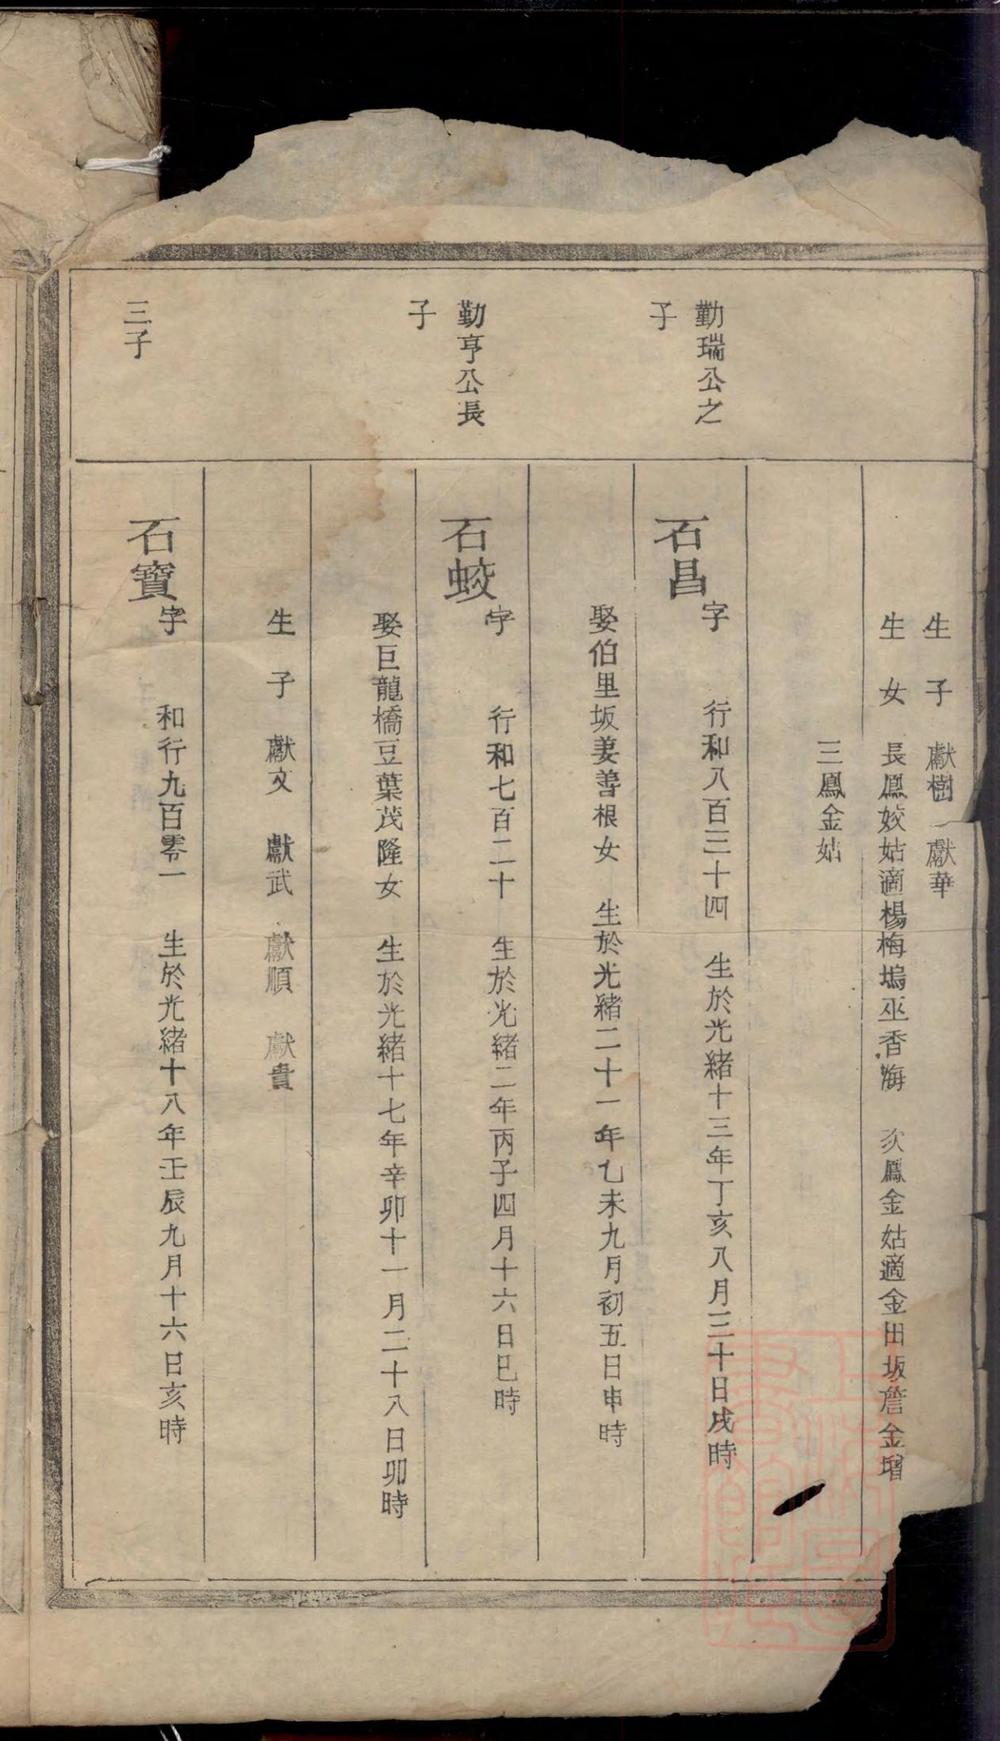 生子 獻樹 獻華
生女 長鳳姣姑適楊梅塢巫香海 次鳳金姑適金田坂詹金增
三鳳金姑
勤瑞公之
子
石昌 字 行和八百三十四 生於光緒十三年丁亥八月三十日戌時
娶伯里坂姜善根女 生於光緒二十一年乙未九月初五日申時
勤亨公長
子
石蛟 字 行和七百二十 生於光緒二年丙子四月十六日巳時
娶巨龍橋豆葉茂隆女 生於光緒十七年辛卯十一月二十八日卯時
生子 獻文 獻武 獻順 獻貴
三子
石寶 字 和行九百零一 生於光緒十八年壬辰九月十六日亥時